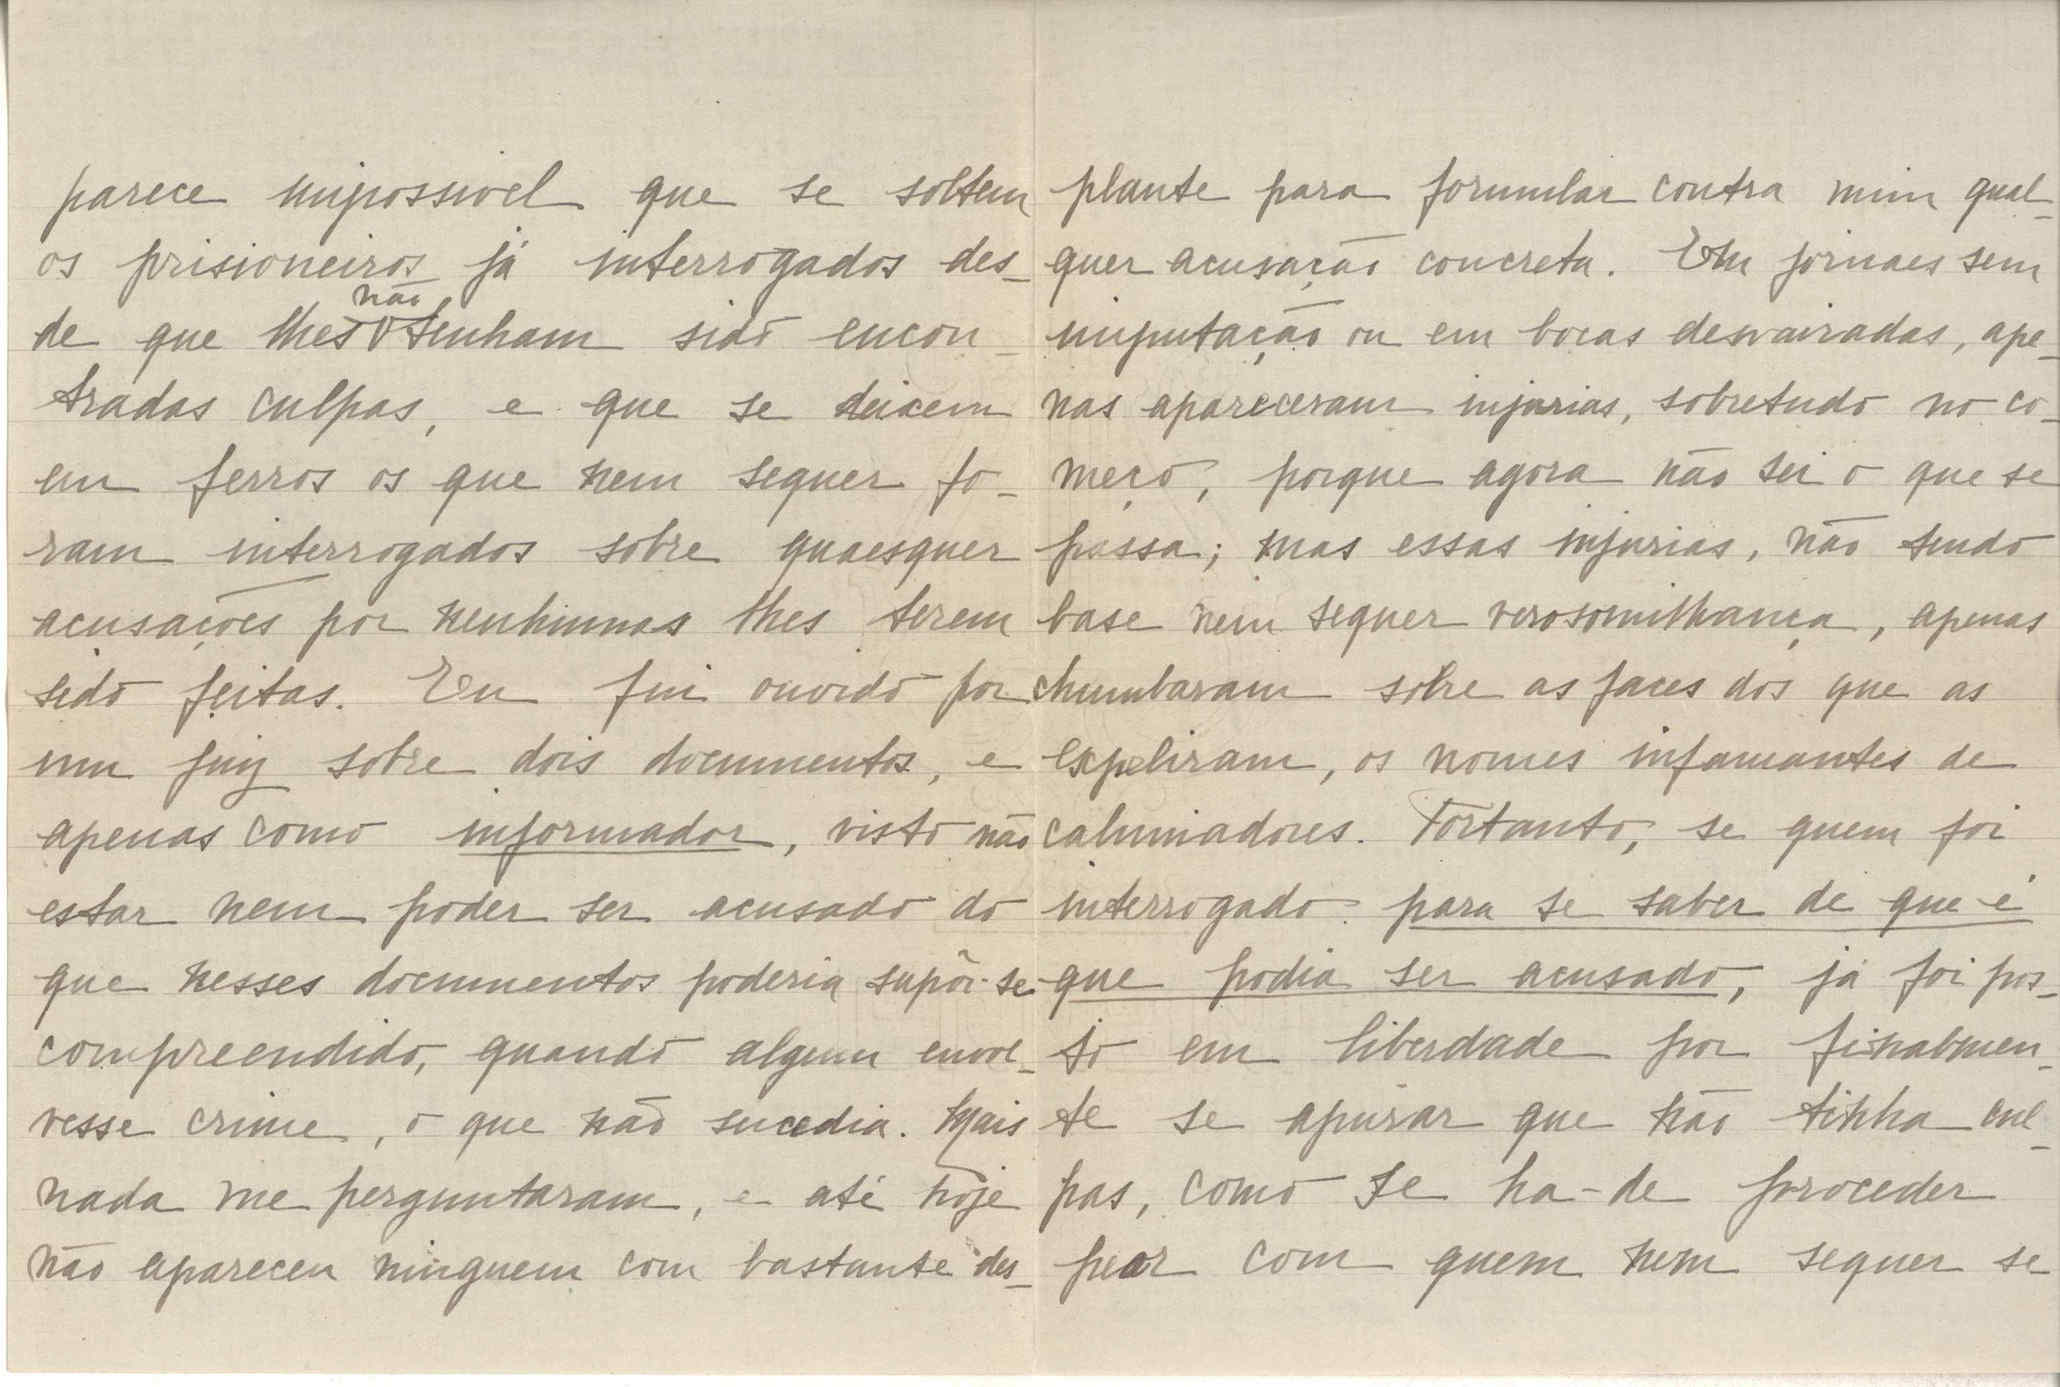 parece impossivel que se soltem
os prisioneiros já interrogados des-
não
de que lhes tenham sido encon-
tradas culpas, e que se deixem
em ferros os que nem sequer fo-
ram interrogados sobre quaesquer
acusações por nenhumas lhes terem
sido feitas. Eu fui ouvido por
um juiz sobre dois documentos, e
apenas como informador, visto não
estar nem poder ser acusado do
que nesses documentos poderia supôr-se
compreendido, quando algum envol-
vesse crime, o que não sucedia. Mais
nada me perguntaram, e até hoje
não apareceu ninguem com bastante des-
plante para formular contra mim qual-
quer acusação concreta. Em jornaes sem
imputação ou em bocas desvairadas, ape-
nas apareceram injurias, sobretudo no co-
meço, porque agora não sei o que se
passa; mas essas injurias, não tendo
base nem sequer verosomilhança, apenas
chumbaram sobre as faces dos que as
expeliram, os nomes infamantes de
caluniadores. Portanto, se quem foi
interrogado para se saber de que é
que podia ser acusado, já foi pos-
to em liberdade por finalmen-
te se apurar que não tinha cul-
pas, como se ha-de proceder
peor com quem nem sequer se